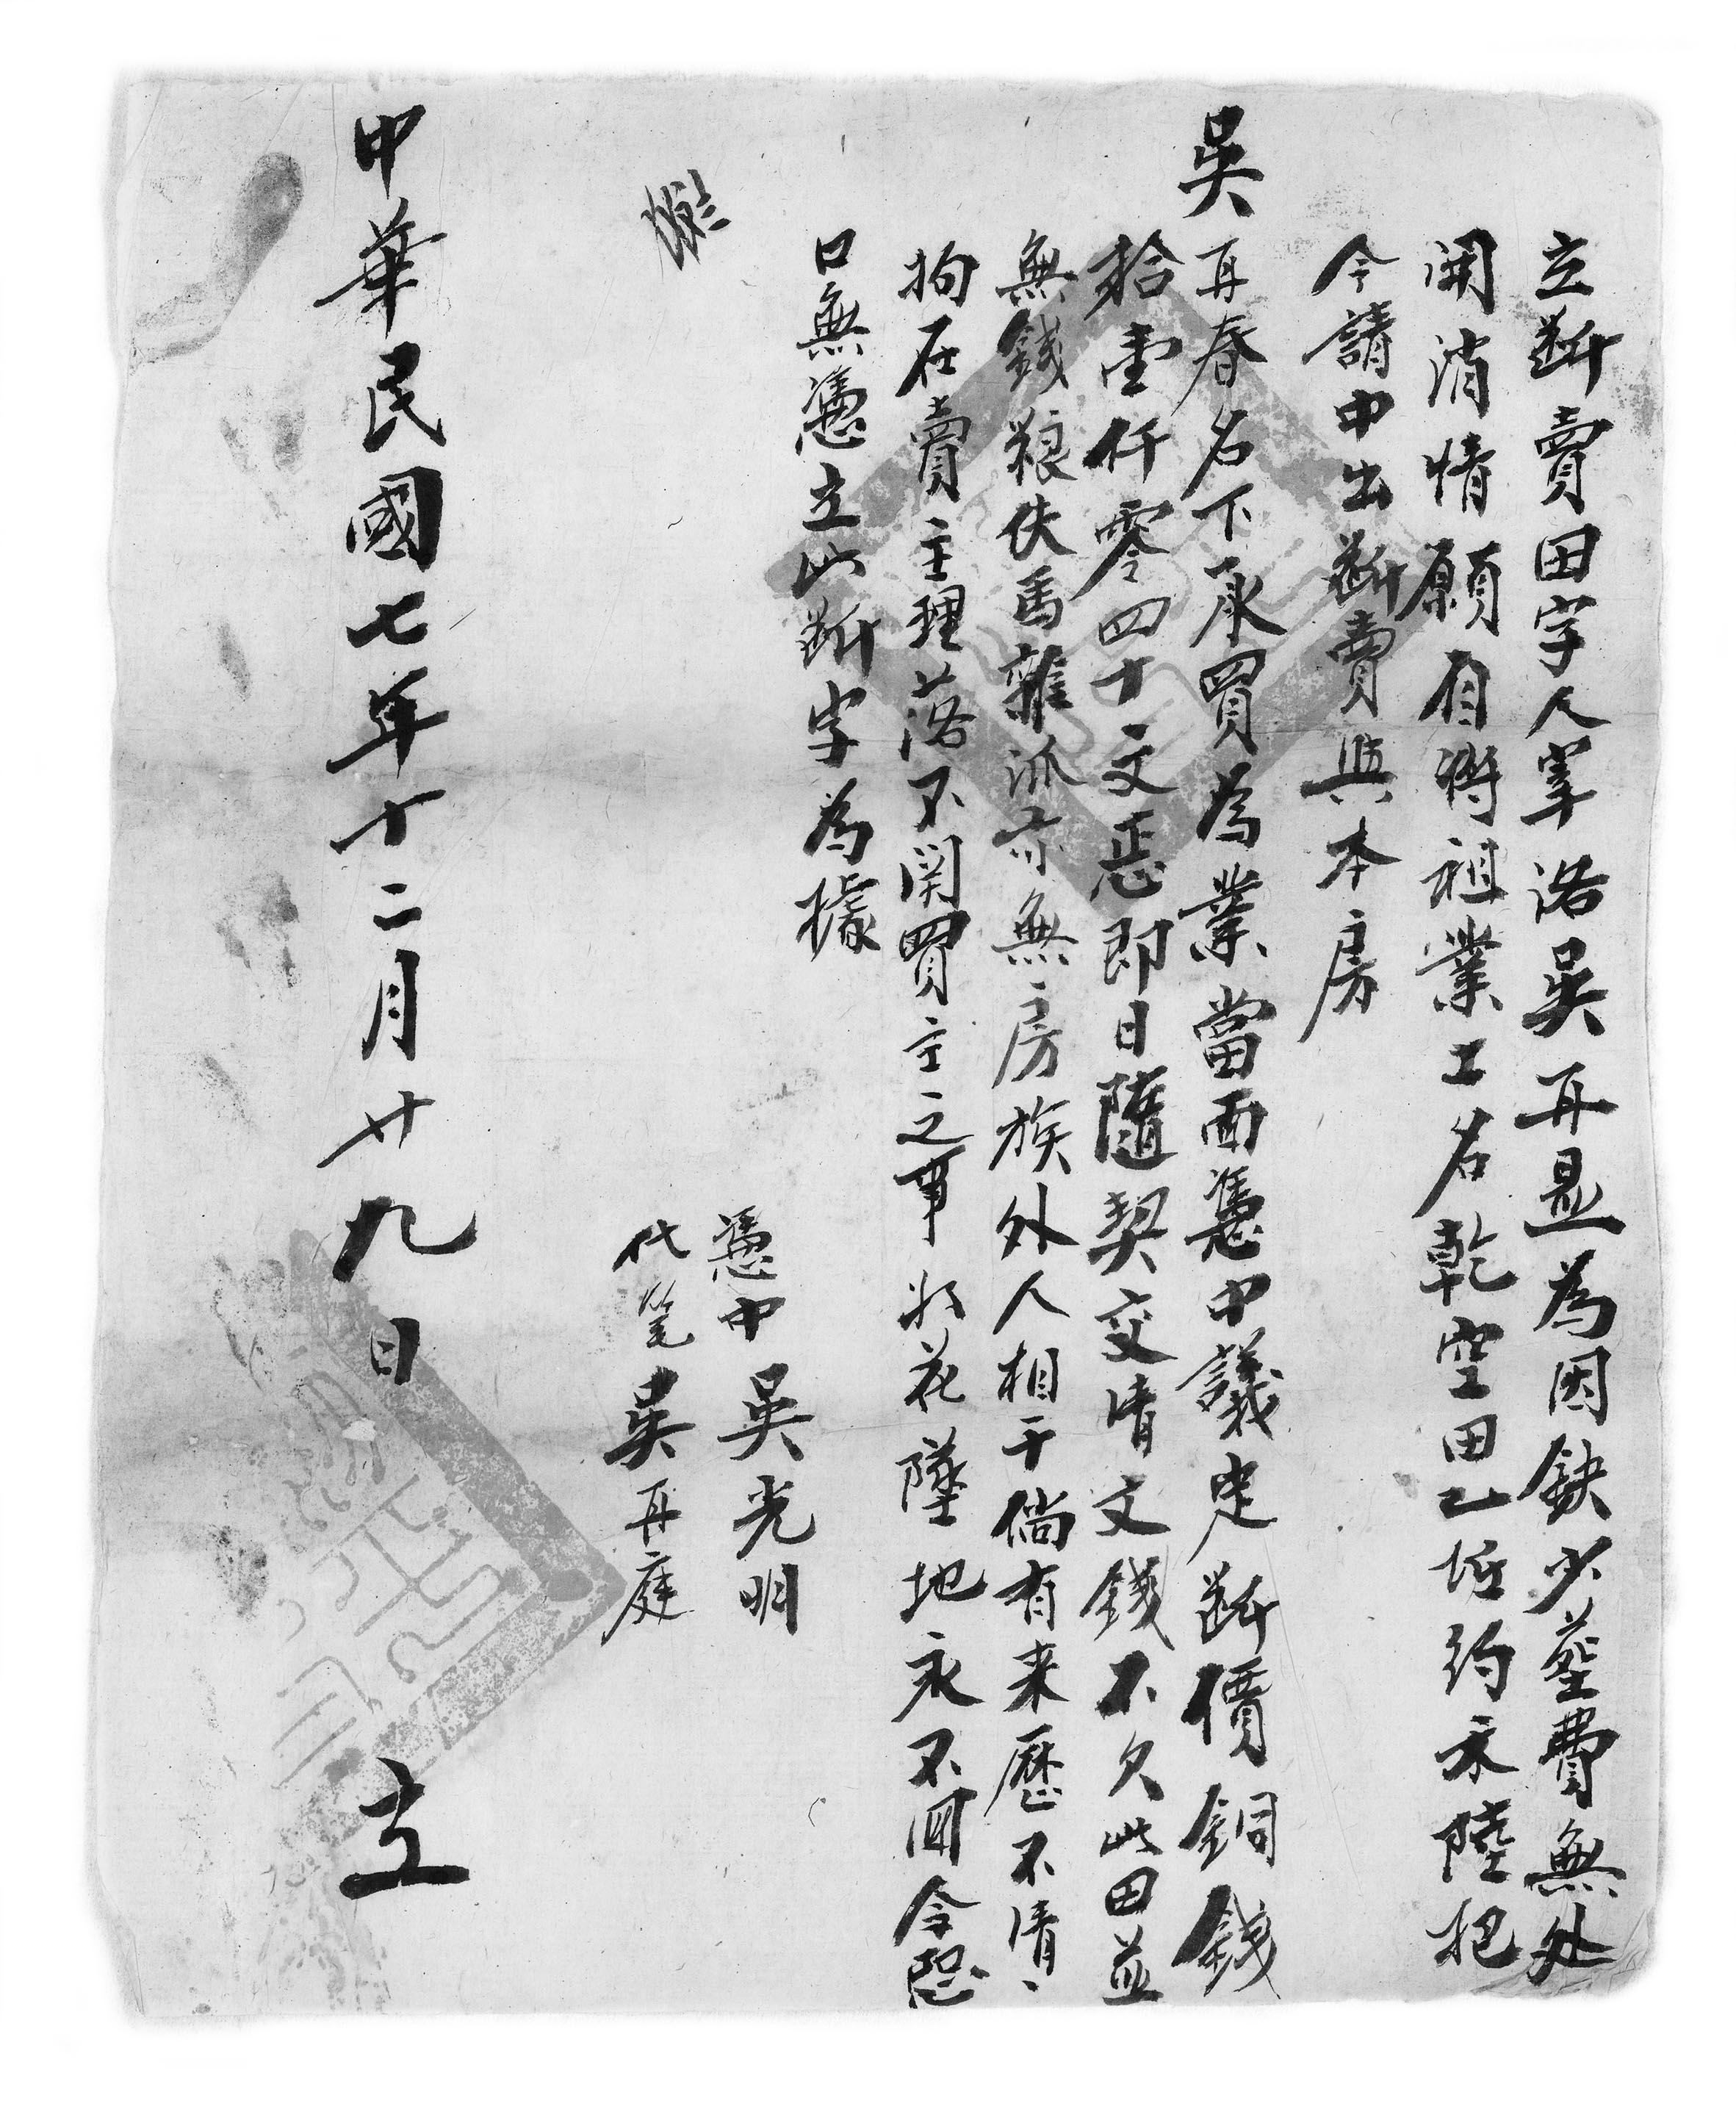 立断賣田字人寨洛吳再显為因缺少塟費無処
開消情願自將祖業土名乾空田乙坵約禾陸把
今請中出断賣與本房
吳再春名下承買為業當面憑中議定断價銅錢
拾壹仟零四十文整即日隨契交清文錢不欠此田並
無錢粮伕馬雜派亦無房族外人相干倘有来歷不清、
拘在賣主理落不関買主之事 花墜地永不回今恐
口無憑立此断字為據
憑中 吳光明
代笔 吳再庭
中華民國七年十二月廿九日 立